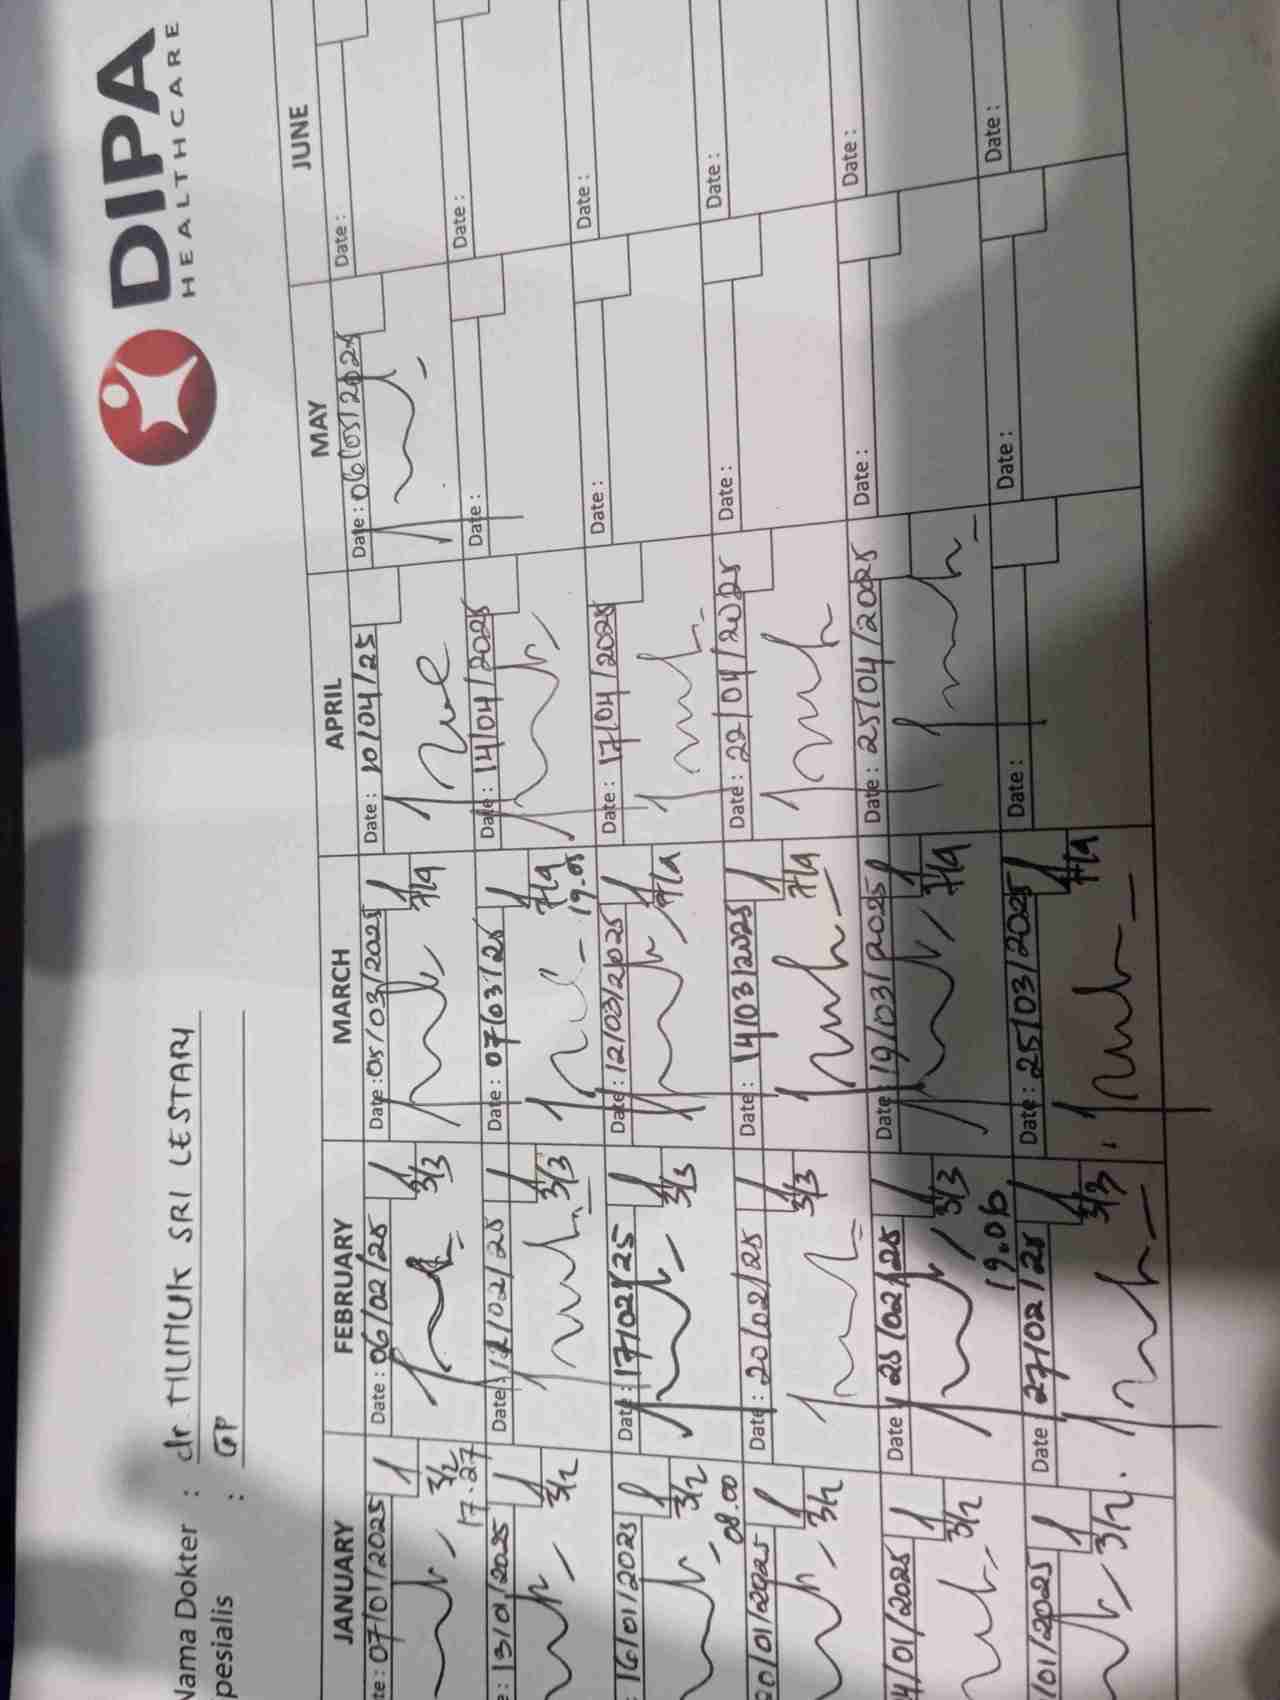 DIPA
HEALTHCARE
Nama Dokter : dr NUNUK SRI LESTARI
pesialis : GP
JANUARY FEBRUARY MARCH APRIL MAY JUNE
te: 07/01/2025 Date: 06/02/25 Date: 05/03/2025 Date: 10/04/25 Date: 06/05/2025 Date:
3/2 3/3 7/4
17.27
: 13/01/2025 Date: 12/02/25 Date: 07/03/25 Date: 14/04/2025 Date: Date:
3/2 3/3 7/4
19.05
: 16/01/2025 Date: 17/02/25 Date: 12/03/2025 Date: 17/04/2025 Date: Date:
3/2 3/3 7/4
08.00
20/01/2025 Date: 20/02/25 Date: 14/03/2025 Date: 22/04/2025 Date: Date:
3/2 3/3 7/4
4/01/2025 Date 25/02/25 Date: 19/03/2025 Date: 25/04/2025 Date: Date:
3/2 3/3 7/4
19.06
/01/2025 Date 27/02/25 Date: 25/03/2025 Date: Date: Date:
3/2 3/3 7/4